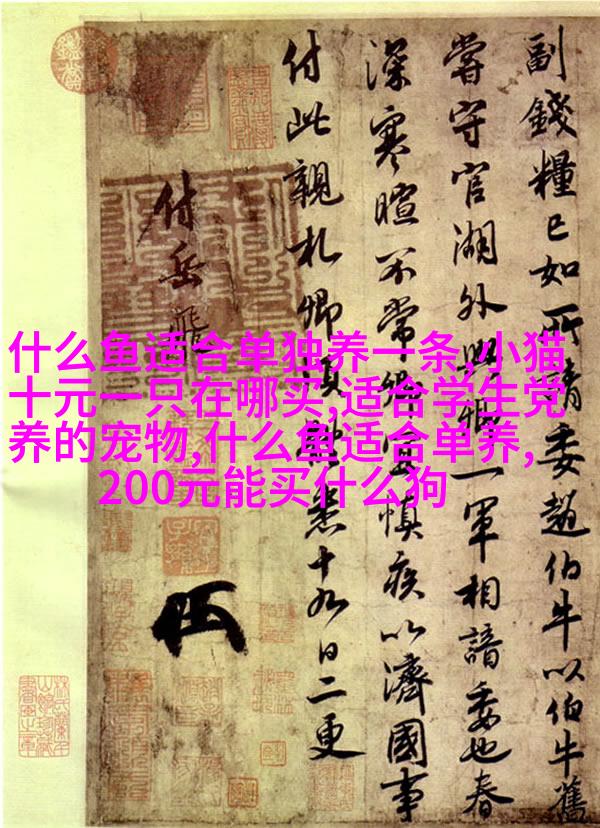 什么鱼适合单独养一条,小猫
十元一只在哪买,适合学生党
养的宠物,什么鱼适合单养,
200元能买什么狗
副錢糧已如所請委趙伯牛以伯牛舊
嘗守官湖外與卿一軍相諳委也春
深寒暄不常卿宜慎疾以濟國事
付此親札卿須體悉十九日二更
付岳飛